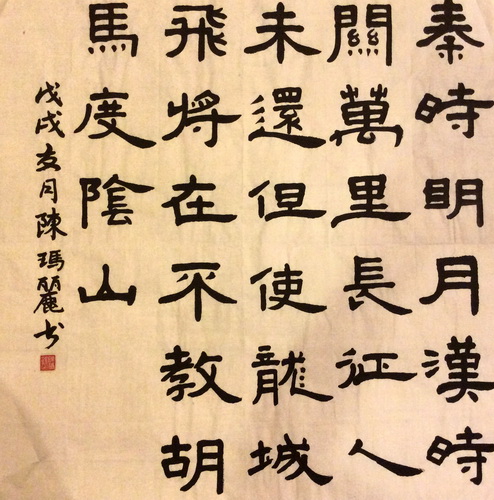 秦時明月漢時
關萬里長征人
未還但使龍城
飛將在不教胡
馬度陰山
戊戌友月陳瑪麗书